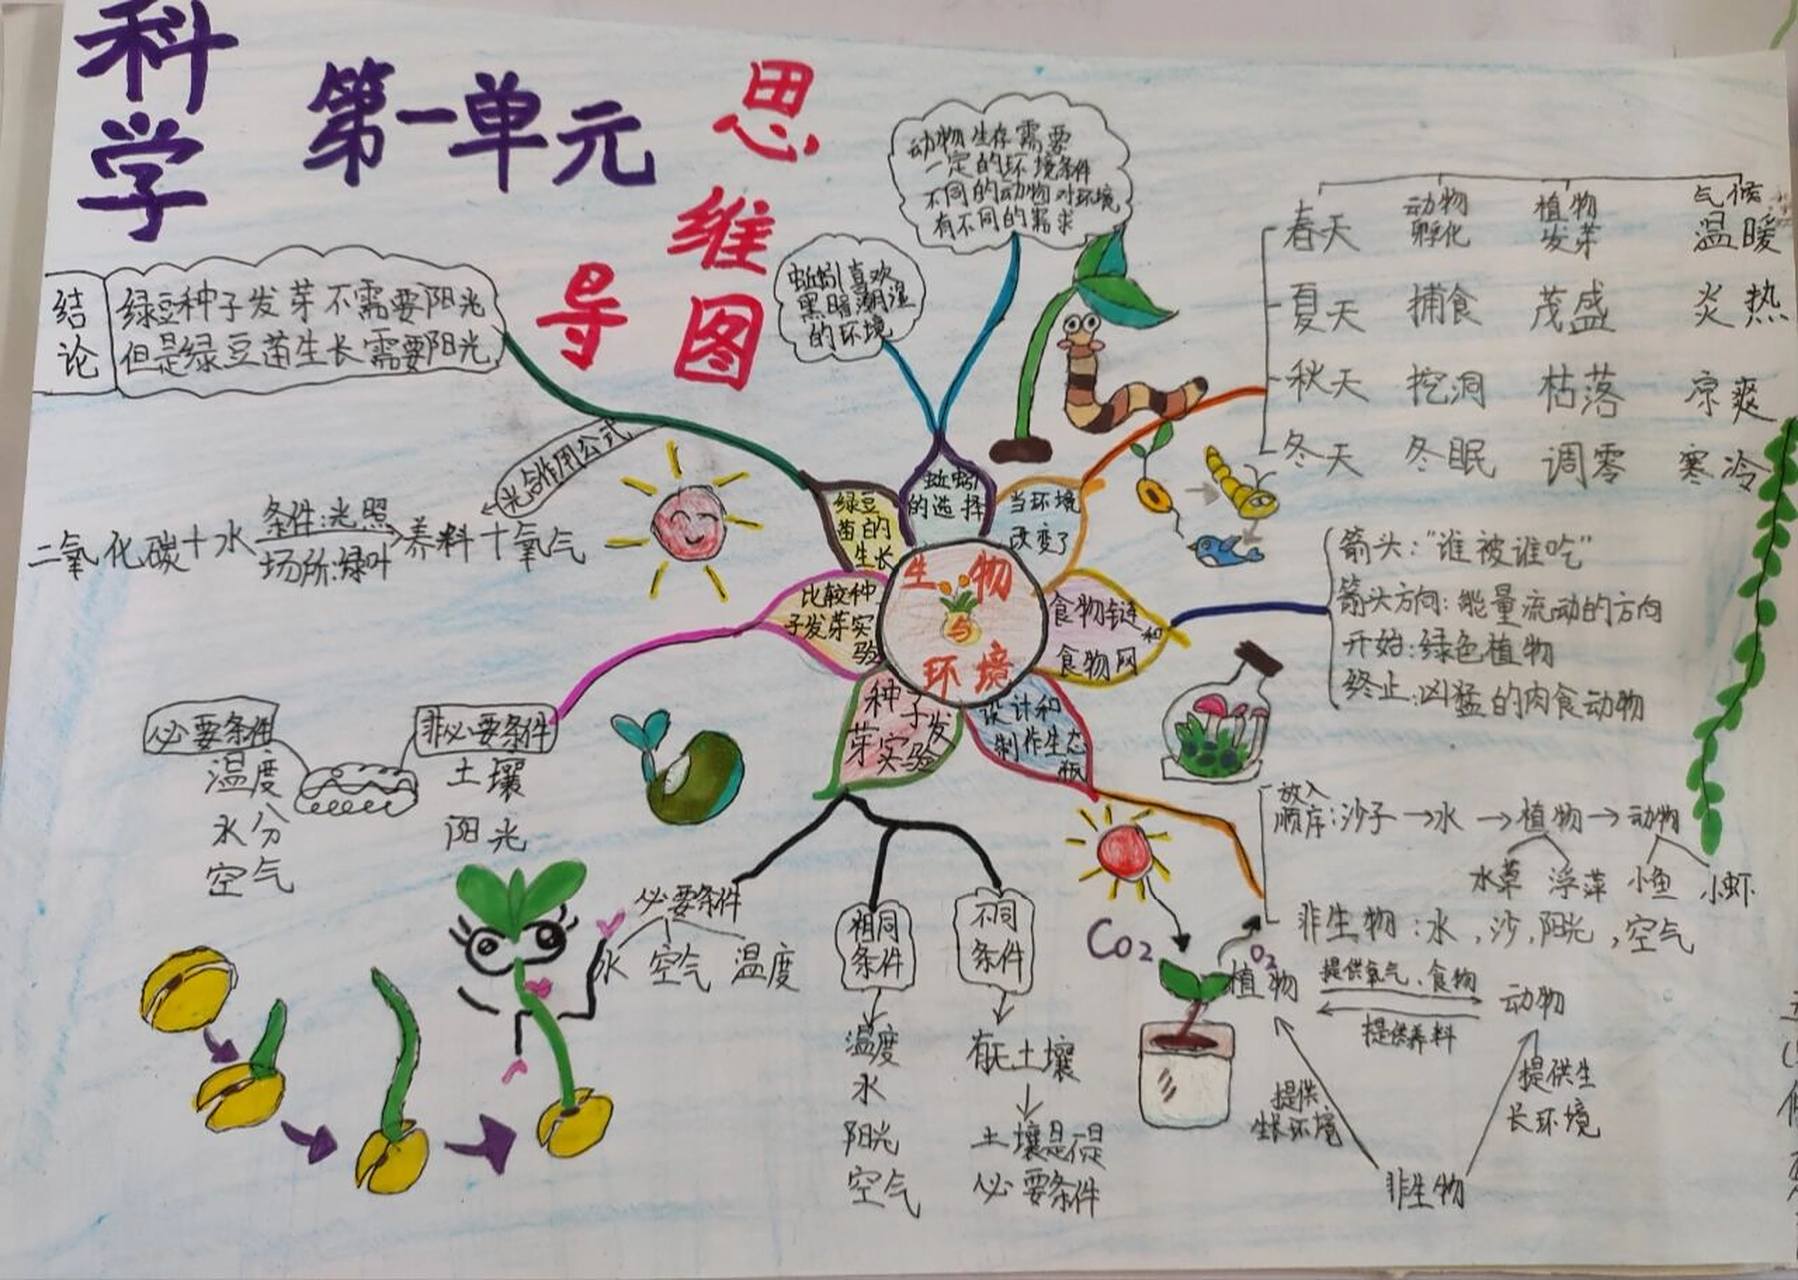 科学
第一单元
思维导图
生物
与
环境
绿豆
苗的
生长
结论
绿豆种子发芽不需要阳光
但是绿豆苗生长需要阳光
光合作用公式
二氧化碳+水
条件:光照
场所:绿叶
养料+氧气
蚯蚓
的选择
蚯蚓喜欢
黑暗潮湿
的环境
动物生存需要
一定的环境条件
不同的动物对环境
有不同的需求
当环境
改变了
动物 植物 气候
春天 孵化 发芽 温暖
夏天 捕食 茂盛 炎热
秋天 挖洞 枯落 凉爽
冬天 冬眠 调零 寒冷
食物链
和
食物网
箭头:“谁被谁吃”
箭头方向:能量流动的方向
开始:绿色植物
终止:凶猛的肉食动物
设计和
制作生态
瓶
放入
顺序:沙子→水→植物→动物
水草 浮萍 小鱼 小虾
非生物:水,沙,阳光,空气
CO2
O2
植物
提供氧气、食物
提供养料
动物
提供
生长环境
提供生
长环境
非生物
种子发
芽实验
必要条件
水 空气 温度
相同
条件
温度
水
阳光
空气
不同
条件
有无土壤
土壤是否是
必要条件
比较种
子发芽实
验
必要条件
温度
水分
空气
非必要条件
土壤
阳光